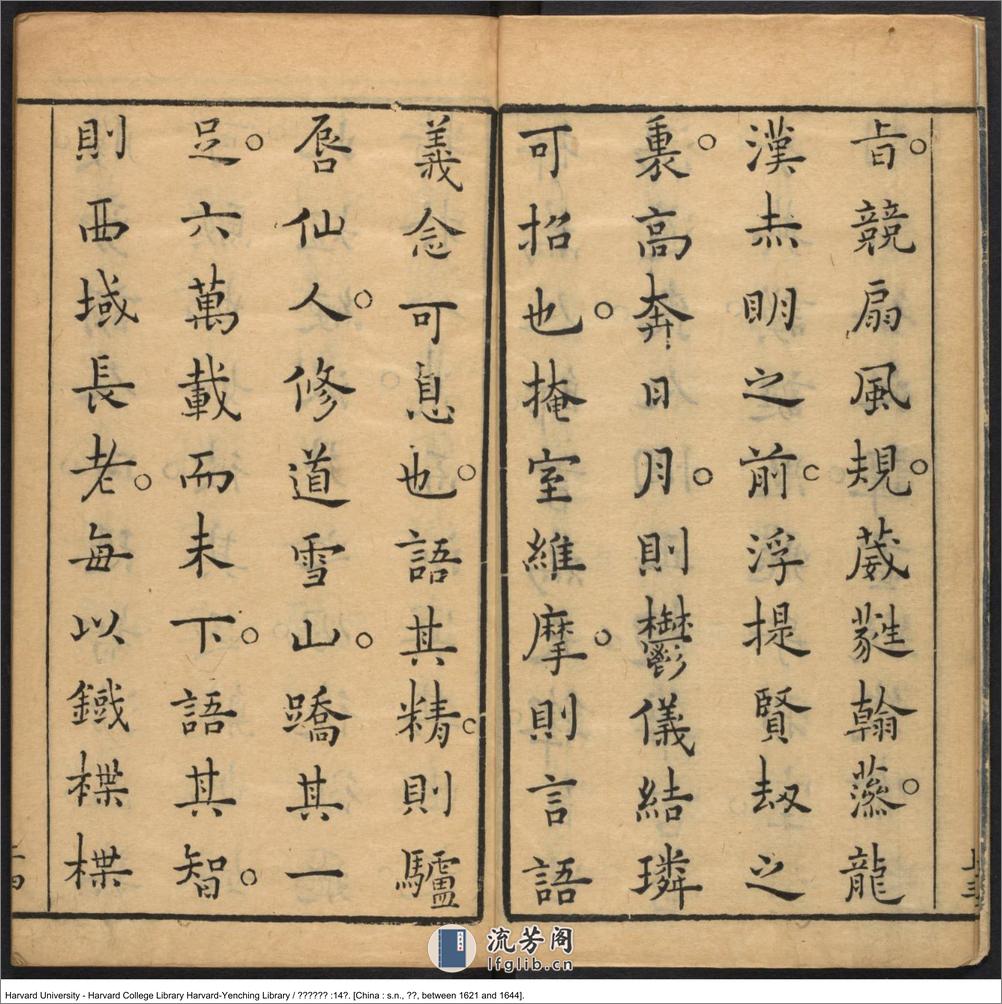 旨。競扇風規。葳蕤翰藻。龍
漢赤明之前。浮提賢劫之
裏。高奔日月。則鬱儀結璘
可招也。掩室維摩。則言語
義念可息也。語其精。則驢
唇仙人。修道雪山。蹻其一
足。六萬載而未下。語其智。
則西域長老。每以鐵楪楪
流芳阁
lfglib.cn
Harvard University - Harvard College Library Harvard-Yenching Library / ?????? :14?. [China : s.n., ??, between 1621 and 1644].